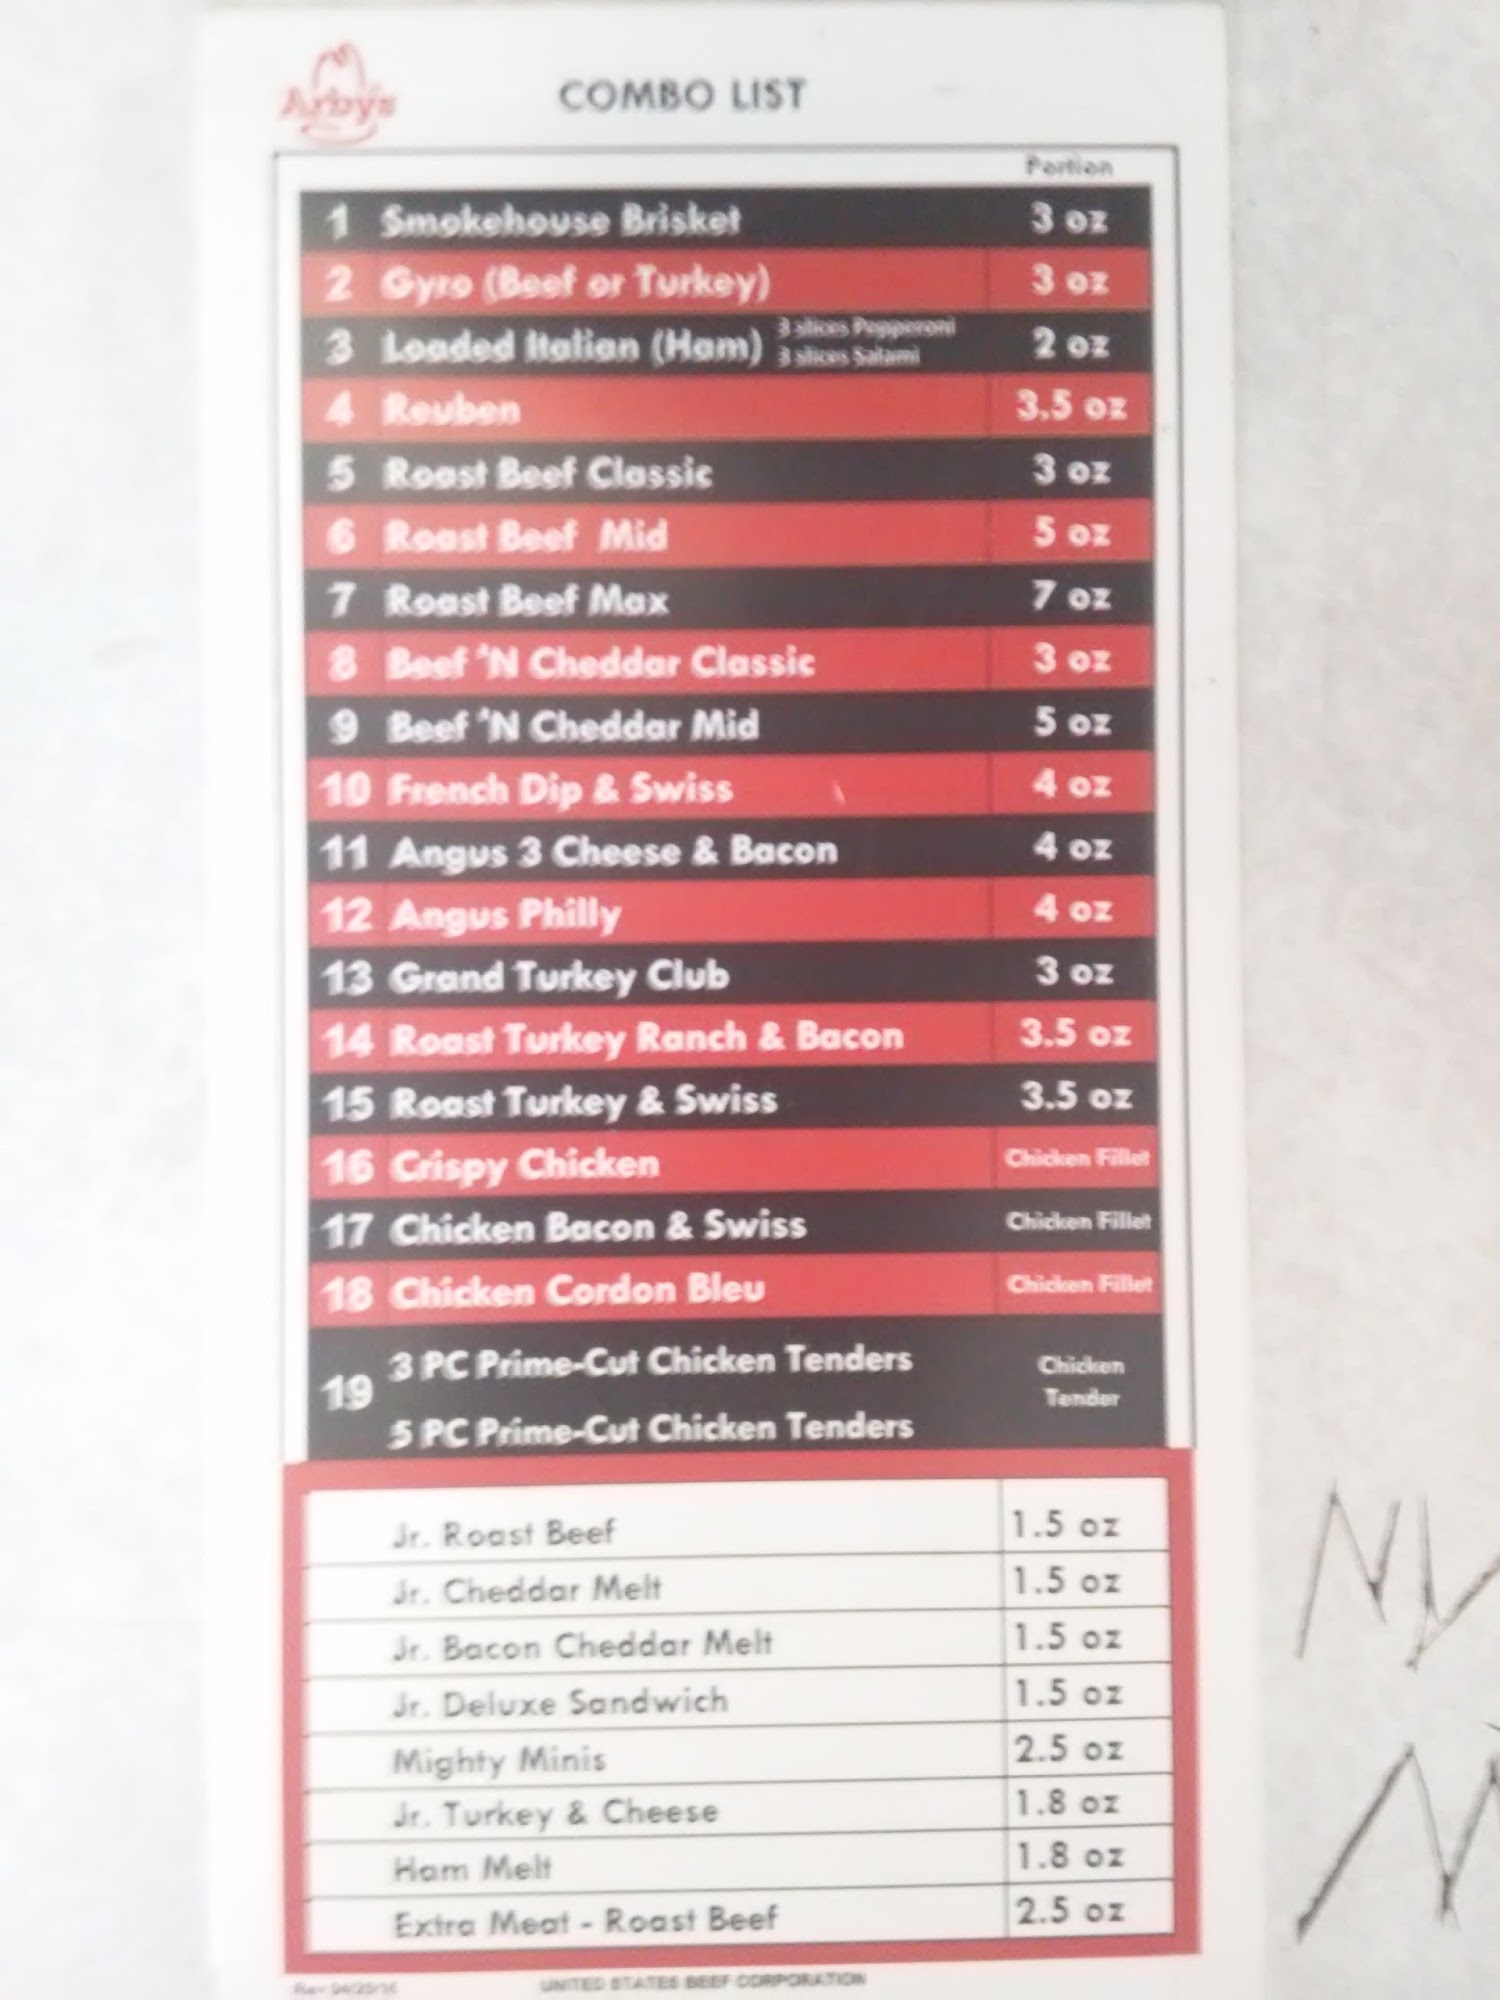 Arby's
COMBO LIST
Portion
1 Smokehouse Brisket 3 oz
2 Gyro (Beef or Turkey) 3 oz
3 Loaded Italian (Ham) 3 slices Pepperoni 3 slices Salami 2 oz
4 Reuben 3.5 oz
5 Roast Beef Classic 3 oz
6 Roast Beef Mid 5 oz
7 Roast Beef Max 7 oz
8 Beef 'N Cheddar Classic 3 oz
9 Beef 'N Cheddar Mid 5 oz
10 French Dip & Swiss 4 oz
11 Angus 3 Cheese & Bacon 4 oz
12 Angus Philly 4 oz
13 Grand Turkey Club 3 oz
14 Roast Turkey Ranch & Bacon 3.5 oz
15 Roast Turkey & Swiss 3.5 oz
16 Crispy Chicken Chicken Fillet
17 Chicken Bacon & Swiss Chicken Fillet
18 Chicken Cordon Bleu Chicken Fillet
19 3 PC Prime-Cut Chicken Tenders Chicken Tender
5 PC Prime-Cut Chicken Tenders
Jr. Roast Beef 1.5 oz
Jr. Cheddar Melt 1.5 oz
Jr. Bacon Cheddar Melt 1.5 oz
Jr. Deluxe Sandwich 1.5 oz
Mighty Minis 2.5 oz
Jr. Turkey & Cheese 1.8 oz
Ham Melt 1.8 oz
Extra Meat - Roast Beef 2.5 oz
Rev 04/25/16 UNITED STATES BEEF CORPORATION